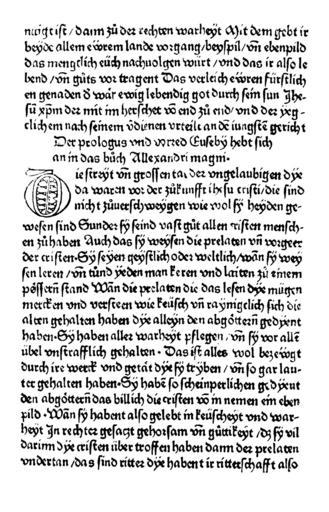 naigt ist / dann zů der rechten warheyt Mit dem gebt ir
beyde allem ewrem lande vorgang / beyspil / vñ ebenpild
das mengklich eüch nachuolgen würt / vnd das ir also le
bend / vñ gůts vor tragent Das verleich ewren fürstlich
en genaden d̄ war ewig lebendig got durch sein sun Jhe-
sū xp̄m der mit im herschet võ end zů end / vnd der yeg-
klichem nach seinem v̈dienen vrteile an dē iungstē gericht
Der prologus vnd vorred Eusebÿ hebt sich
an in das bůch Allexandri magni·
Die streyt vñ grossen tat der vngelaubigen dye
da waren vor der zůkunfft ihesu cristi / die sind
nicht zůuerschweygen wie wol sy heyden ge-
wesen sind Sunder sy seind vast gůt allen cristen mensch-
en zů haben Auch das sy weysen die prelaten vñ vorgeer
der cristen·Sy seyen geystlich oder weltlich / wañ sy wey
sen leren / vñ tůnd yeden man keren vnd laiten zů einem
pössern stand Wañ die prelaten die das lesen dye mügen
mercken vnd versteen wie keüsch vñ raynigklich sich die
alten gehalten haben dye alleyn den abgöttern gedyent
haben·Sy haben aller warheyt pflegen / vñ sy vor allē
übel vnstrafflich gehalten·Das ist alles wol bezeügt
durch ire werck vnd getät dye sy tryben / vñ so gar lau-
ter gehalten haben·Sy habē so scheinperlichen gedyeut
den abgöttern das billich die cristen võ in nemen ein eben
pild·Wañ sy habent also gelebt in keüscheyt vnd war-
heyt Jn rechter gesaczt gehorsam vñ güttikeyt / dz sy vil
darinn dye cristen über troffen haben dann der prelaten
vndertan / das sind ritter dye habent ir ritterschafft also